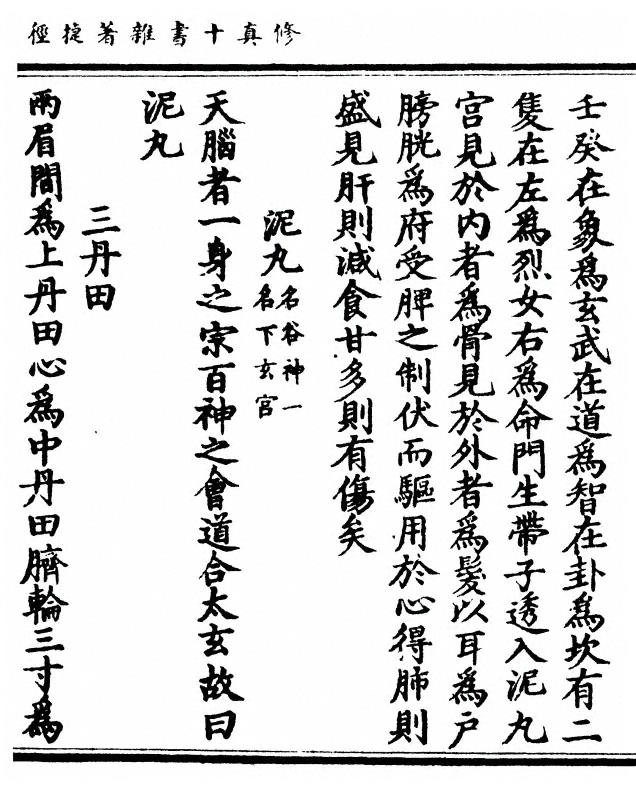 修真十書雜著捷徑
壬癸在象為玄武在道為智在卦為坎有二
隻在左為烈女右為命門生帶子透入泥丸
宮見於內者為骨見於外者為髮以耳為戶
膀胱為府受脾之制伏而驅用於心得肺則
盛見肝則減食甘多則有傷矣
泥丸名谷神一名下玄宮
天腦者一身之宗百神之會道合太玄故曰
泥丸
三丹田
兩眉間為上丹田心為中丹田臍輪三寸為